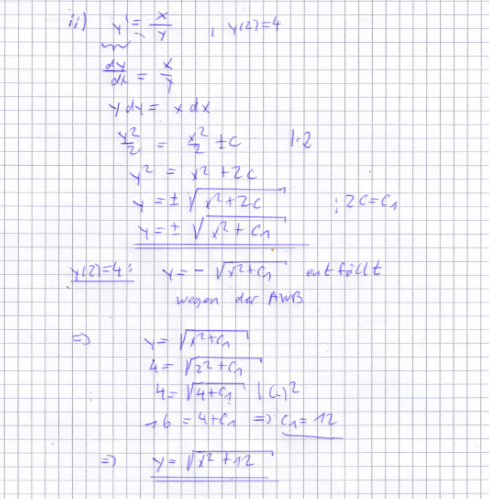 ii) y' = x/y , y(2)=4
dy/dx = x/y
y dy = x dx
y²/2 = x²/2 ± c |·2
y² = x² + 2c
y = ± √(x²+2c) ; 2c = c₁
y = ± √(x² + c₁)
y(2)=4: y = - √(x²+c₁) entfällt
wegen der AWB
=> y = √(x²+c₁)
4 = √(2²+c₁)
4 = √(4+c₁) |(·)²
16 = 4+c₁ => c₁ = 12
=> y = √(x²+12)